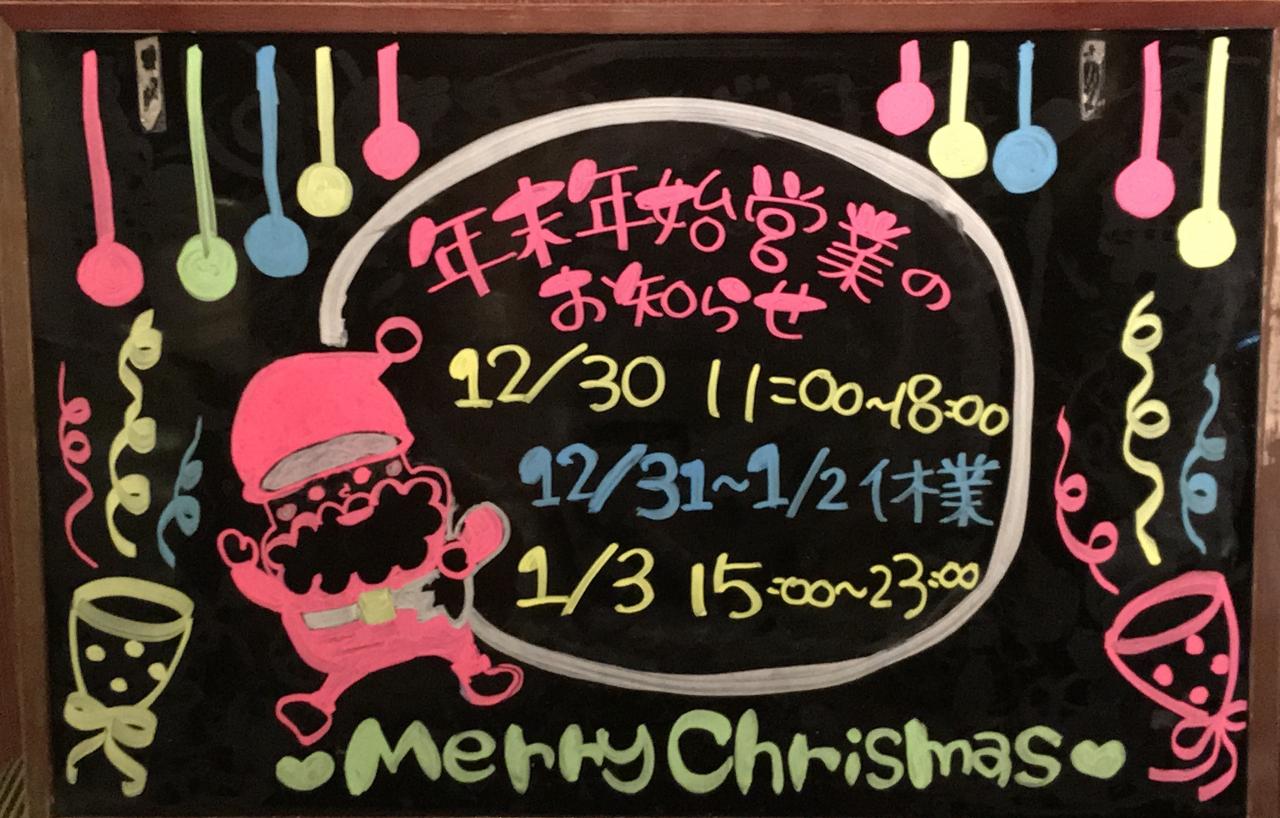 年末年始営業の
お知らせ
12/30 11:00~18:00
12/31~1/2休業
1/3 15:00~23:00
Merry Chrismas